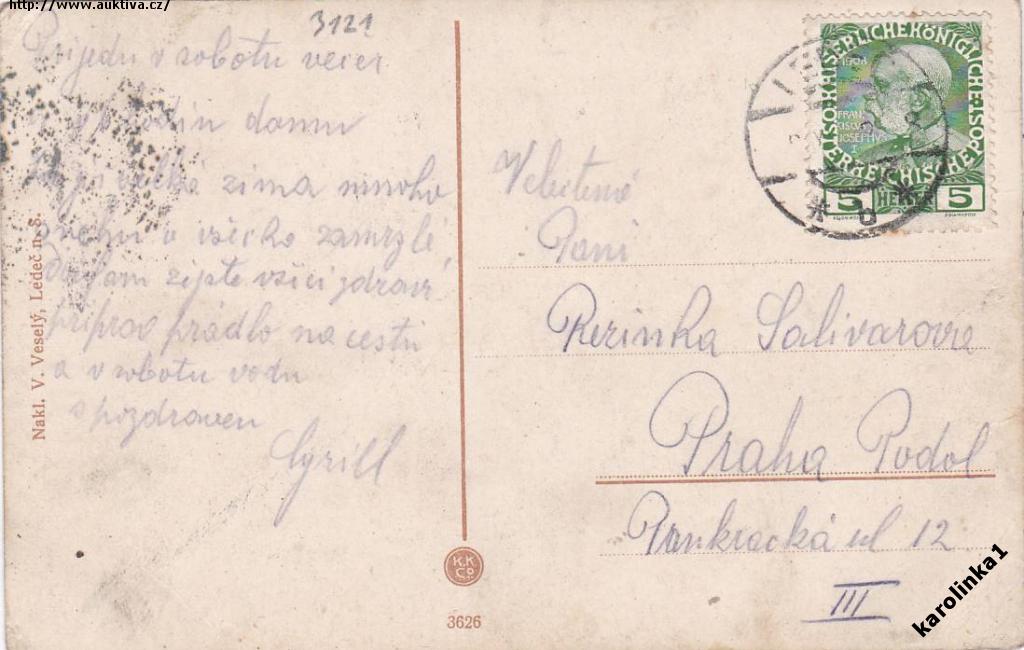 http://www.auktiva.cz/
3121
Prijedu v sobotu vecer
hodin domu
je velka zima mnoho
snehu a vsecko zamrzlé
zijste vsici zdravi
priprav pradlo na cestu
a v sobotu vodu
s pozdravem
Cyrill
Nakl. V. Veselý, Ledeč n. S.
K.K. Co.
3626
KAISERLICHE KÖNIGLICHE ÖSTERREICHISCHE POST
1908
FRANCISCVS JOSEPHVS I
5 HELLER 5
b
Velectená
Paní
Rezinka Salivarova
Praha Podol
Pankracká ul 12
III
karolinka1